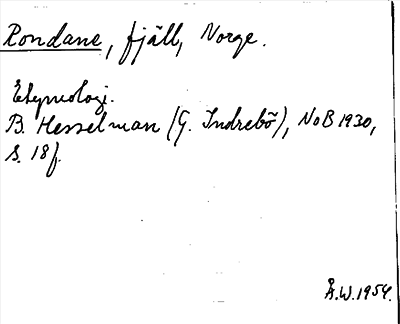 Rondane, fjäll, Norge.
Etymologi.
B. Hesselman (G. Indrebö), NoB 1930,
s. 18f.
Å.W. 1954.